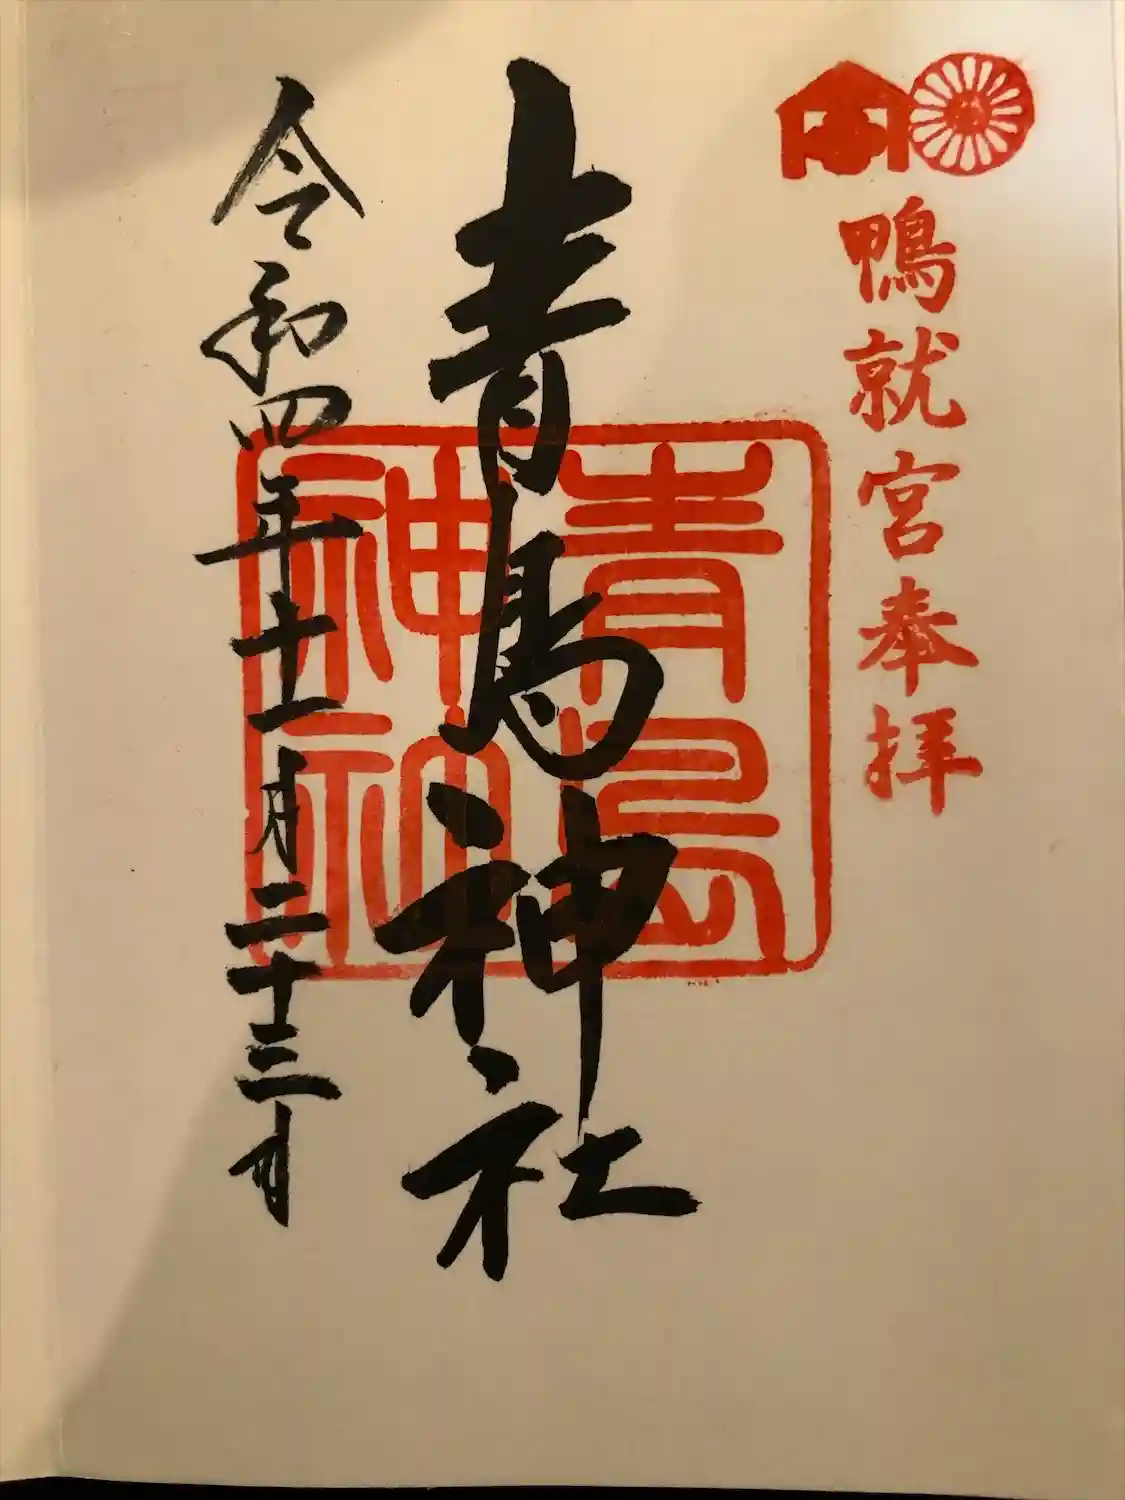 鴨就宮奉拝
青島神社
青島
神社
令和四年十一月二十三日